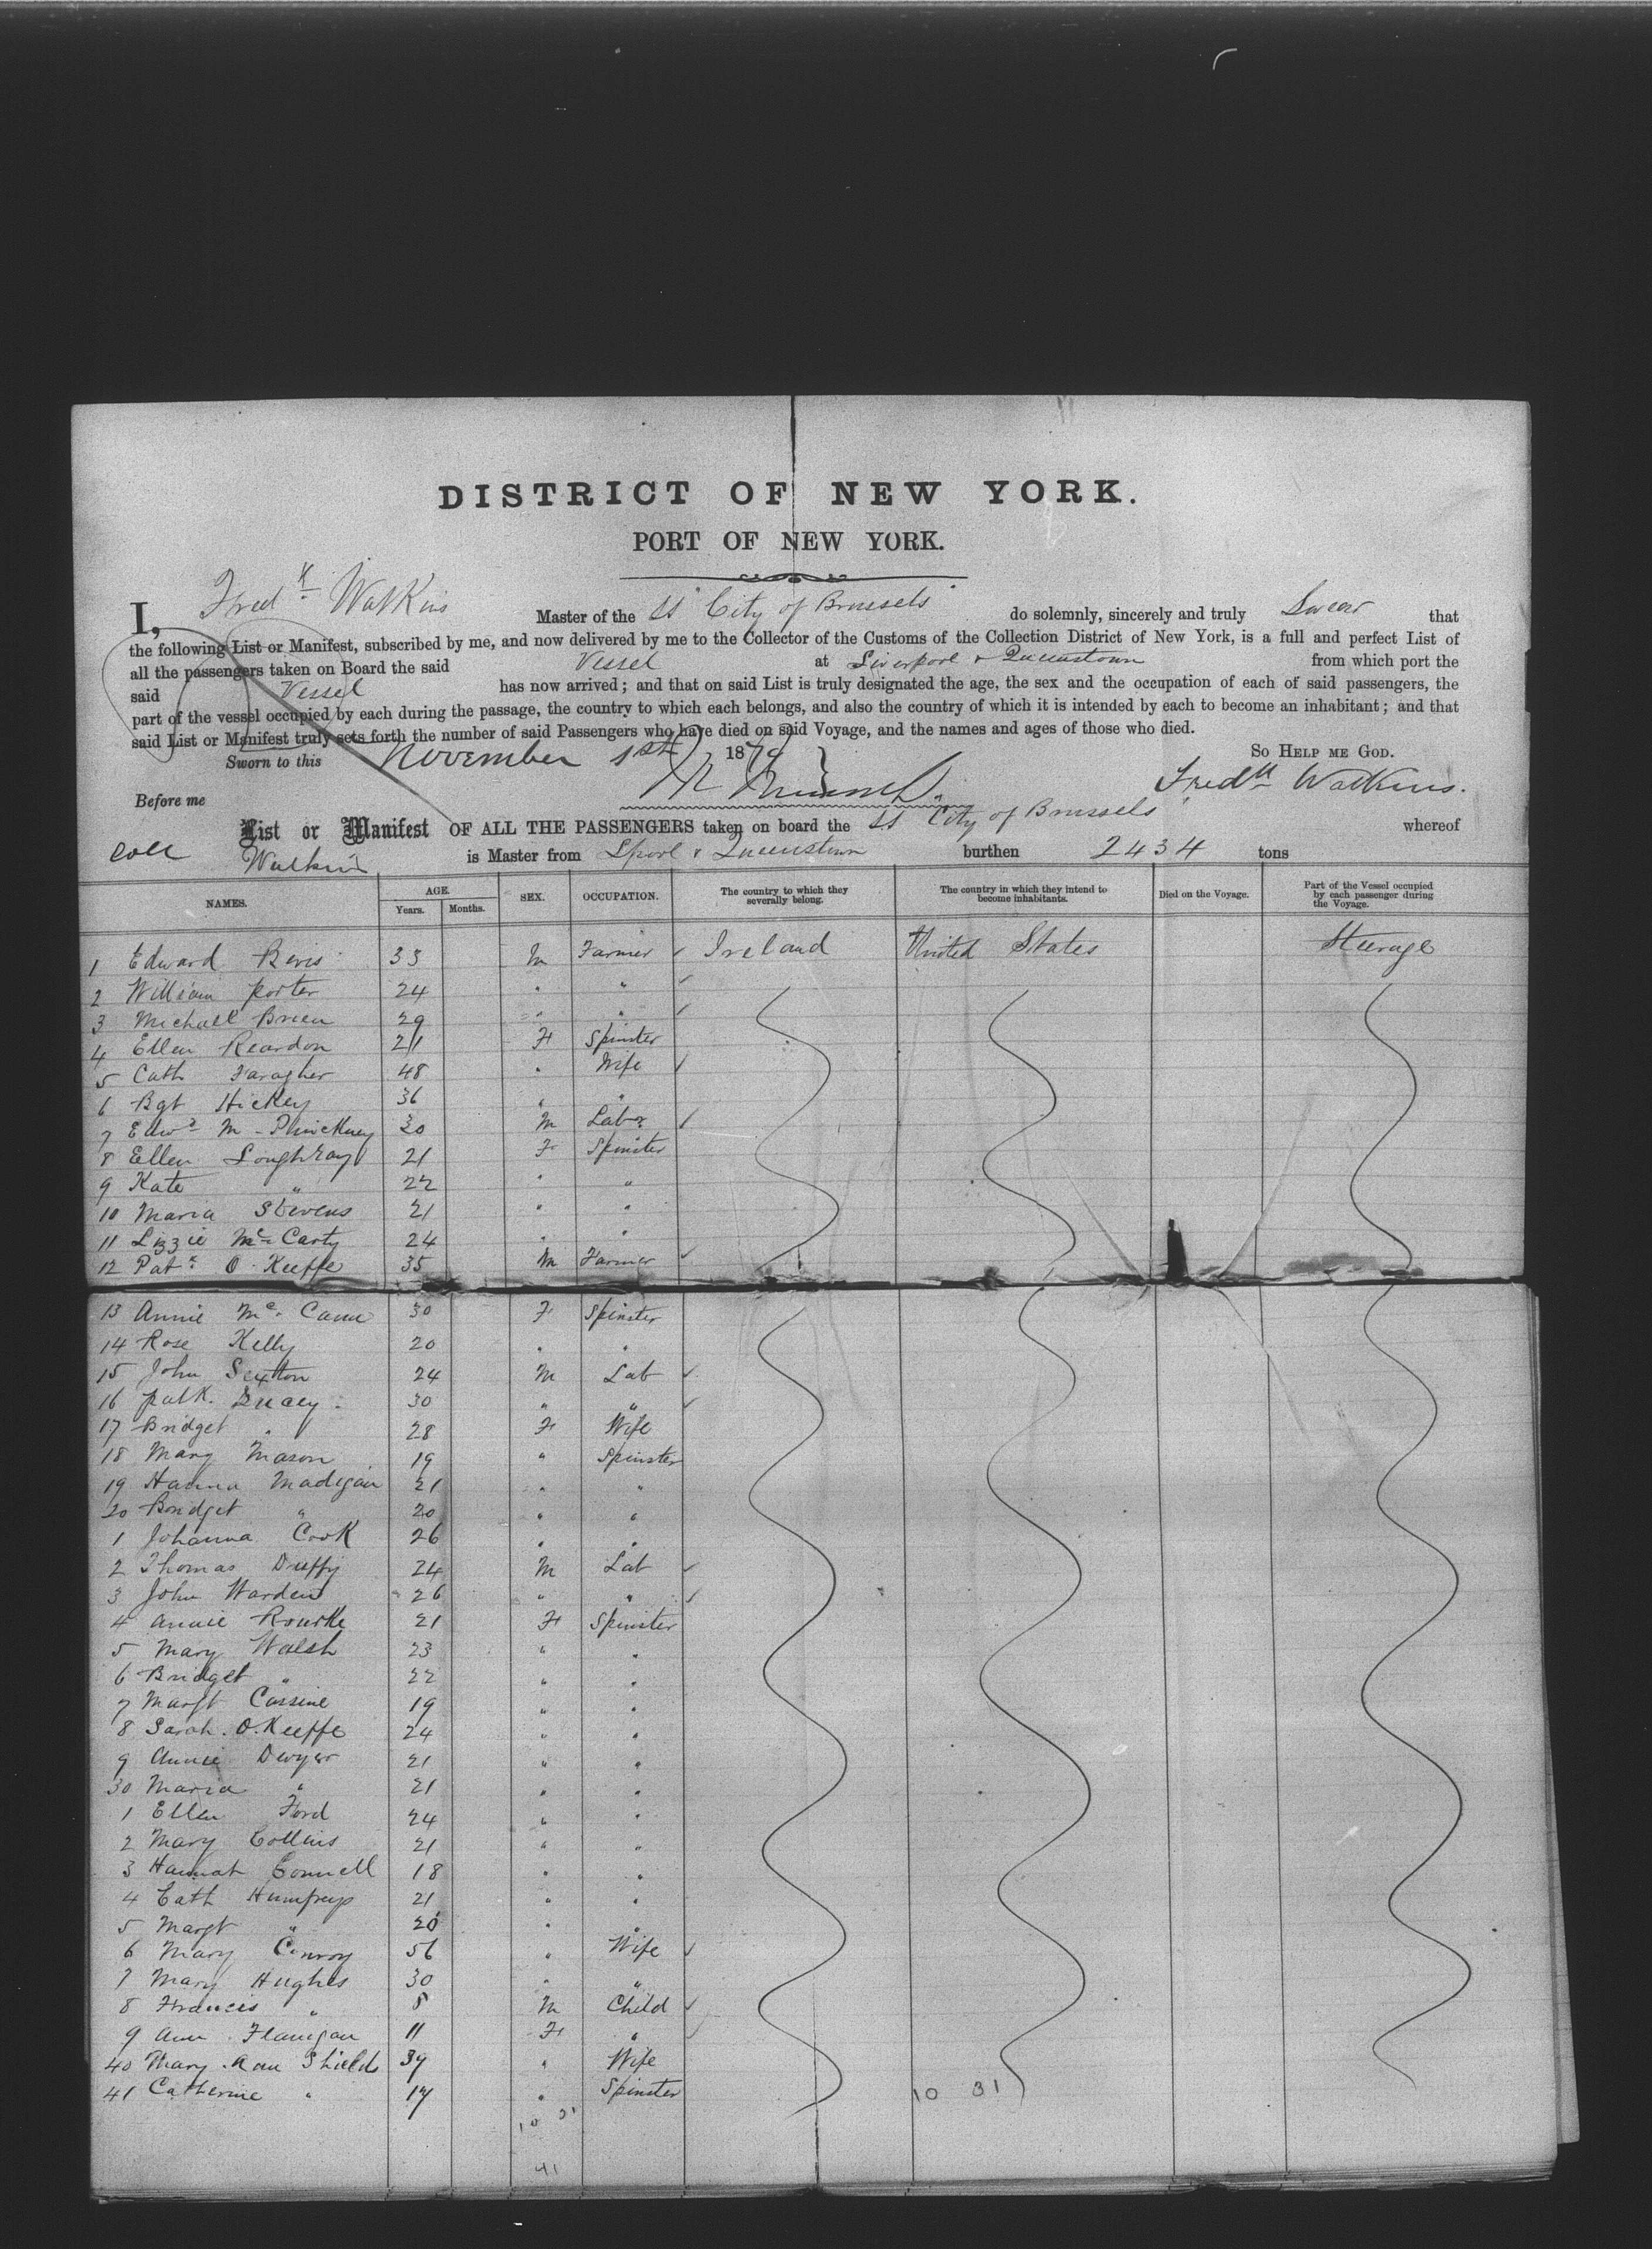 DISTRICT OF NEW YORK.
PORT OF NEW YORK.
I, Fredk Watkins Master of the SS "City of Brussels" do solemnly, sincerely and truly Swear that
the following List or Manifest, subscribed by me, and now delivered by me to the Collector of the Customs of the Collection District of New York, is a full and perfect List of
all the passengers taken on Board the said Vessel at Liverpool & Queenstown from which port the
said Vessel has now arrived; and that on said List is truly designated the age, the sex and the occupation of each of said passengers, the
part of the vessel occupied by each during the passage, the country to which each belongs, and also the country of which it is intended by each to become an inhabitant; and that
said List or Manifest truly sets forth the number of said Passengers who have died on said Voyage, and the names and ages of those who died.
Sworn to this November 1st 1879 So HELP ME GOD.
Before me Fredk Watkins.
List or Manifest OF ALL THE PASSENGERS taken on board the SS "City of Brussels" whereof
Watkins is Master from Lpool & Queenstown burthen 2434 tons
NAMES. AGE. Years. Months. SEX. OCCUPATION. The country to which they severally belong. The country in which they intend to become inhabitants. Died on the Voyage. Part of the Vessel occupied by each passenger during the Voyage.
1 Edward 33 M Farmer Ireland United States Steerage
2 William Porter 24 " "
3 Michael Brien 29 " "
4 Ellen Reardon 21 F Spinster
5 Cath Faragher 48 " Wife
6 Bgt Hickey 36 " "
7 Edwd M 30 M Labr
8 Ellen Loughray 21 F Spinster
9 Kate " 22 " "
10 Maria Stevens 21 " "
11 Lizzie McCarty 24 " "
12 Patk O'Keeffe 35 M Farmer
13 Annie Mc Cann 30 F Spinster
14 Rose Kelly 20 " "
15 John Sexton 24 M Lab
16 Patk. 30 " "
17 Bridget " 28 F Wife
18 Mary Mason 19 " Spinster
19 Hanna Madigan 21 " "
20 Bridget " 20 " "
1 Johanna Cook 26 " "
2 Thomas Duffy 24 M Lab
3 John Warden 26 " "
4 Annie Rourke 21 F Spinster
5 Mary Walsh 23 " "
6 Bridget " 22 " "
7 Margt Cassine 19 " "
8 Sarah O.Keeffe 24 " "
9 Annie Dwyer 21 " "
30 Maria " 21 " "
1 Ellen Ford 24 " "
2 Mary Collins 21 " "
3 Hannah Connell 18 " "
4 Cath Humfreys 21 " "
5 Margt " 20 " "
6 Mary Conroy 56 " Wife
7 Mary Hughes 30 " "
8 Francis " 8 M Child
9 Ann Flanigan 11 F "
40 Mary Ann Shields 39 " Wife
41 Catherine " 17 " Spinster 10 31
10 31
41